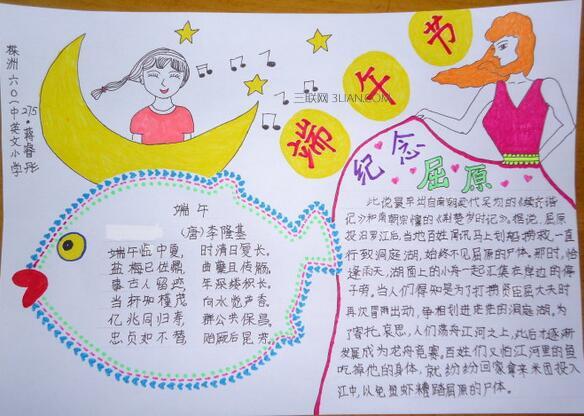 端午节
三联网 3LIAN.COM
株洲六〇一中英文小学
275·蒋睿彤
纪念
屈原
端午
(唐)李隆基
端午临中夏,时清日复长。
盐梅已佐鼎,曲糵且传觞。
事古人留迹,年深缕积长。
当轩知槿茂,向水觉芦香。
亿兆同归寿,群公共保昌。
忠贞如不替,贻厥后昆芳。
此说最早出自南朝梁代吴均的《续齐谐
记》和南朝宗懔的《荆楚岁时记》。据说,屈原
投汨罗江后,当地百姓闻讯马上划船捞救,一直
行致洞庭湖,始终不见屈原的尸体。那时,恰
逢雨天,湖面上的小舟一起汇集在岸边的停
子旁。当人们得知是为了打捞贤臣屈大夫时
再次冒雨出动,争相划进茫茫的洞庭湖。为
了寄托哀思,人们荡舟江河之上,此后才逐渐
发展成为龙舟竞赛。百姓们又怕江河里的鱼
吃掉他的身体,就纷纷回家拿来米团投入
江中,以免鱼虾糟踏屈原的尸体。